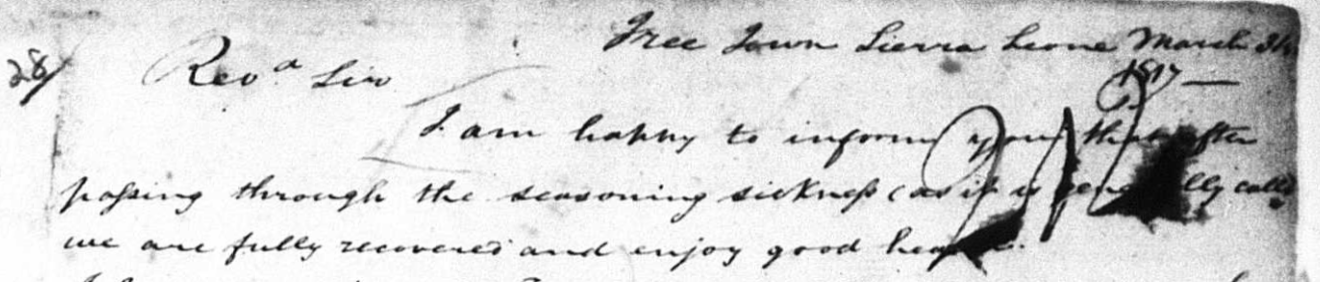 Free Town Sierra Leone March 31
1817 —
28/ Revd Sir
I am happy to inform you that after
passing through the seasoning sickness (as it is generally calld
we are fully recovered and enjoy good health.